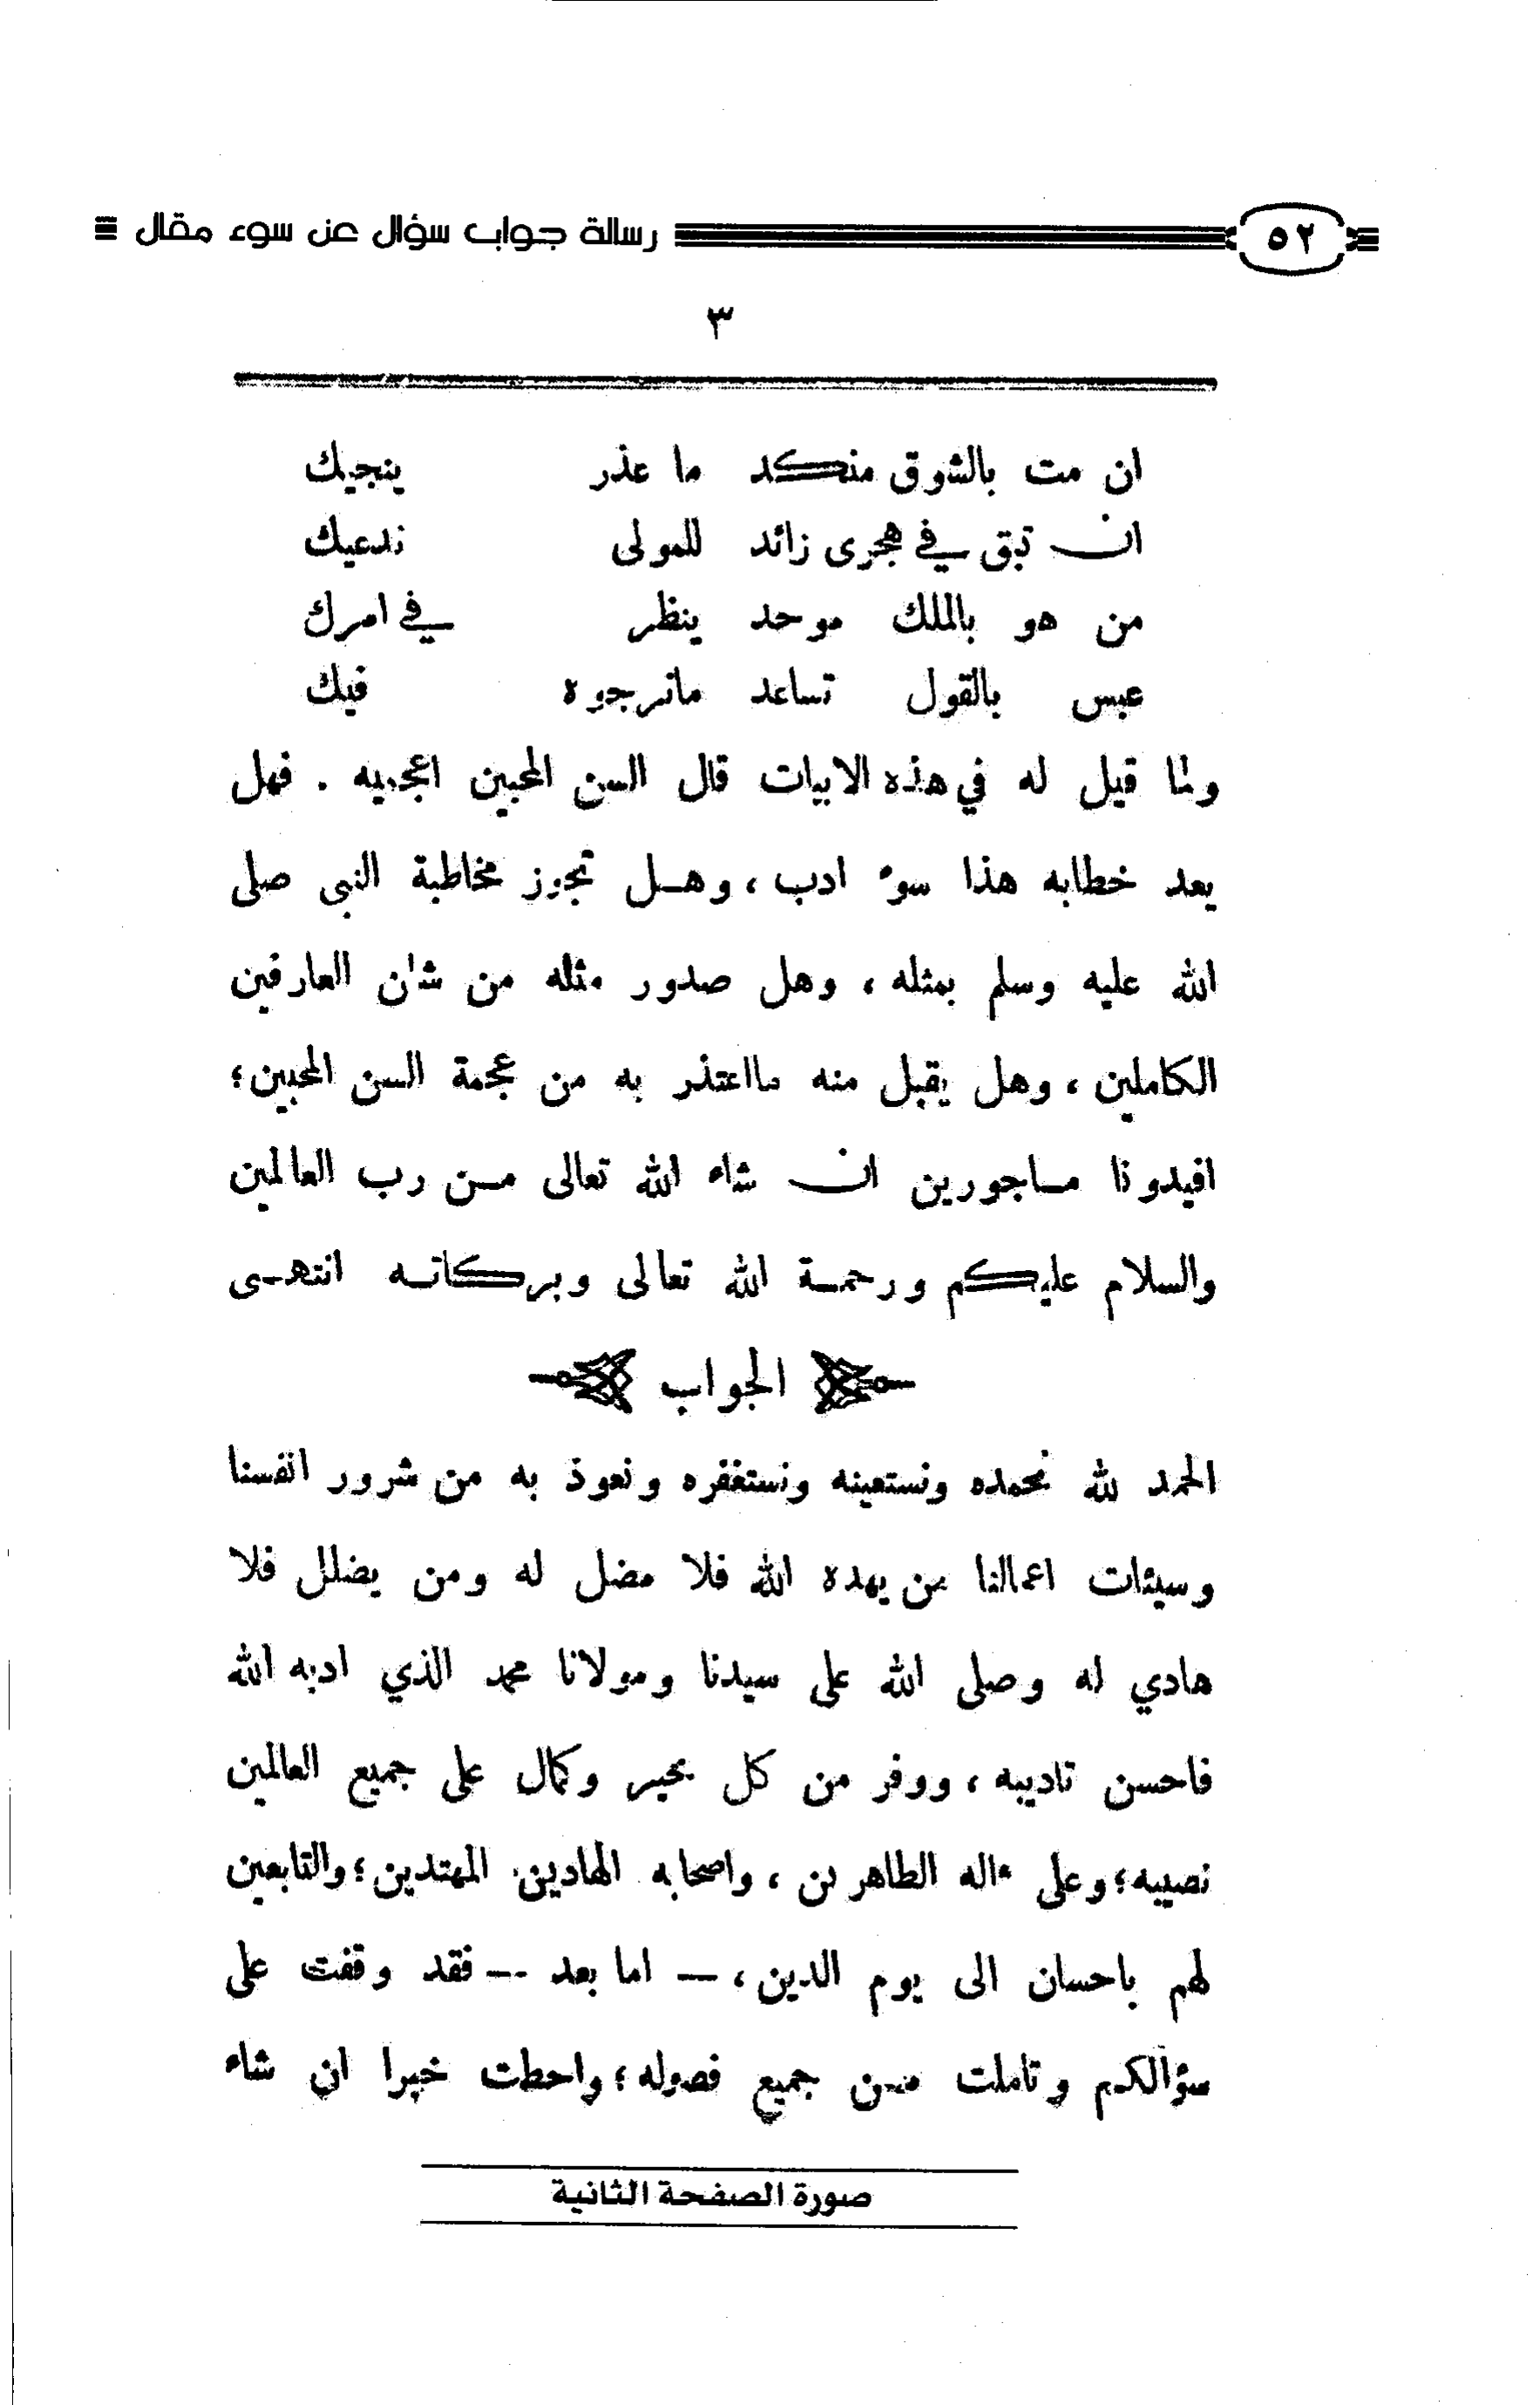 ٥٢ رسالة جواب سؤال عن سوء مقال
٣
ان مت بالشوق منكد ما عذر ينجيك
ان تبق في هجرى زائد للمولى ندعيك
من هو بالملك موحد ينظر في امرك
عبس بالقول تساعد ماترجوه فيك
ولما قيل له في هذه الابيات قال السن المحبين اعجميه . فهل
يعد خطابه هذا سوء ادب ، وهل تجوز مخاطبة النبي صلى
الله عليه وسلم بمثله ، وهل صدور مثله من شان العارفين
الكاملين ، وهل يقبل منه مااعتذر به من عجمة السن المحبين ؛
افيدونا ماجورين ان شاء الله تعالى من رب العالمين
والسلام عليكم ورحمة الله تعالى وبركاته انتهى
الجواب
الحمد لله نحمده ونستعينه ونستغفره ونعوذ به من شرور انفسنا
وسيئات اعمالنا من يهده الله فلا مضل له ومن يضلل فلا
هادي له وصلى الله على سيدنا ومولانا محمد الذي ادبه الله
فاحسن تاديبه ، ووفر من كل خير وكمال على جميع العالمين
نصيبه ؛ وعلى ءاله الطاهرين ، واصحابه الهادين المهتدين ؛ والتابعين
لهم باحسان الى يوم الدين ، — اما بعد -- فقد وقفت على
سؤالكم وتاملت من جميع فصوله ؛ واحطت خبرا ان شاء
صورة الصفحة الثانية